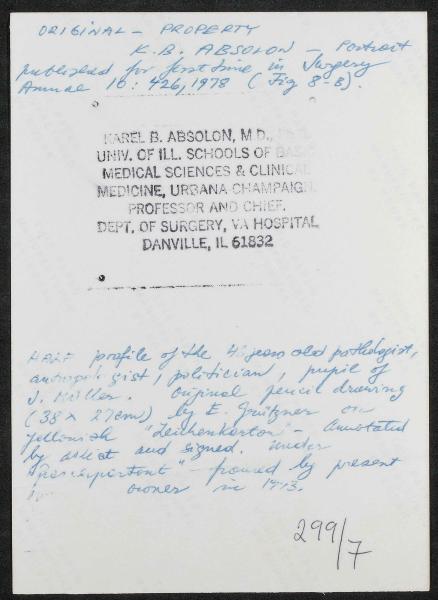 ORIGINAL - PROPERTY
K.B. ABSOLON - Portrait
published for first time in Surgery
Annual 10: 426, 1978 (Fig 8-B).
KAREL B. ABSOLON, M.D., PH.D.
UNIV. OF ILL. SCHOOLS OF BASIC
MEDICAL SCIENCES & CLINICAL
MEDICINE, URBANA CHAMPAIGN.
PROFESSOR AND CHIEF,
DEPT. OF SURGERY, VA HOSPITAL
DANVILLE, IL 61832
HALF profile of the years old pathologist,
politician, pupil of
J. Müller. Original pencil drawing
(38 x 27cm) by E. Grützner on
yellowish "Zeichenkarton" - annotated
by artist and signed. Under
"Passepartout" - framed by present
owner in
299/7